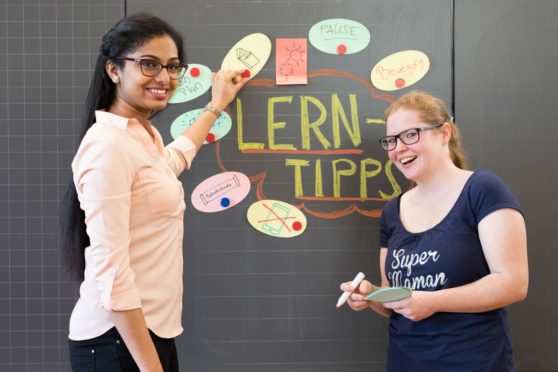 PAUSE
Bewegung
Plan
LERN-
TIPPS
Super
Maman